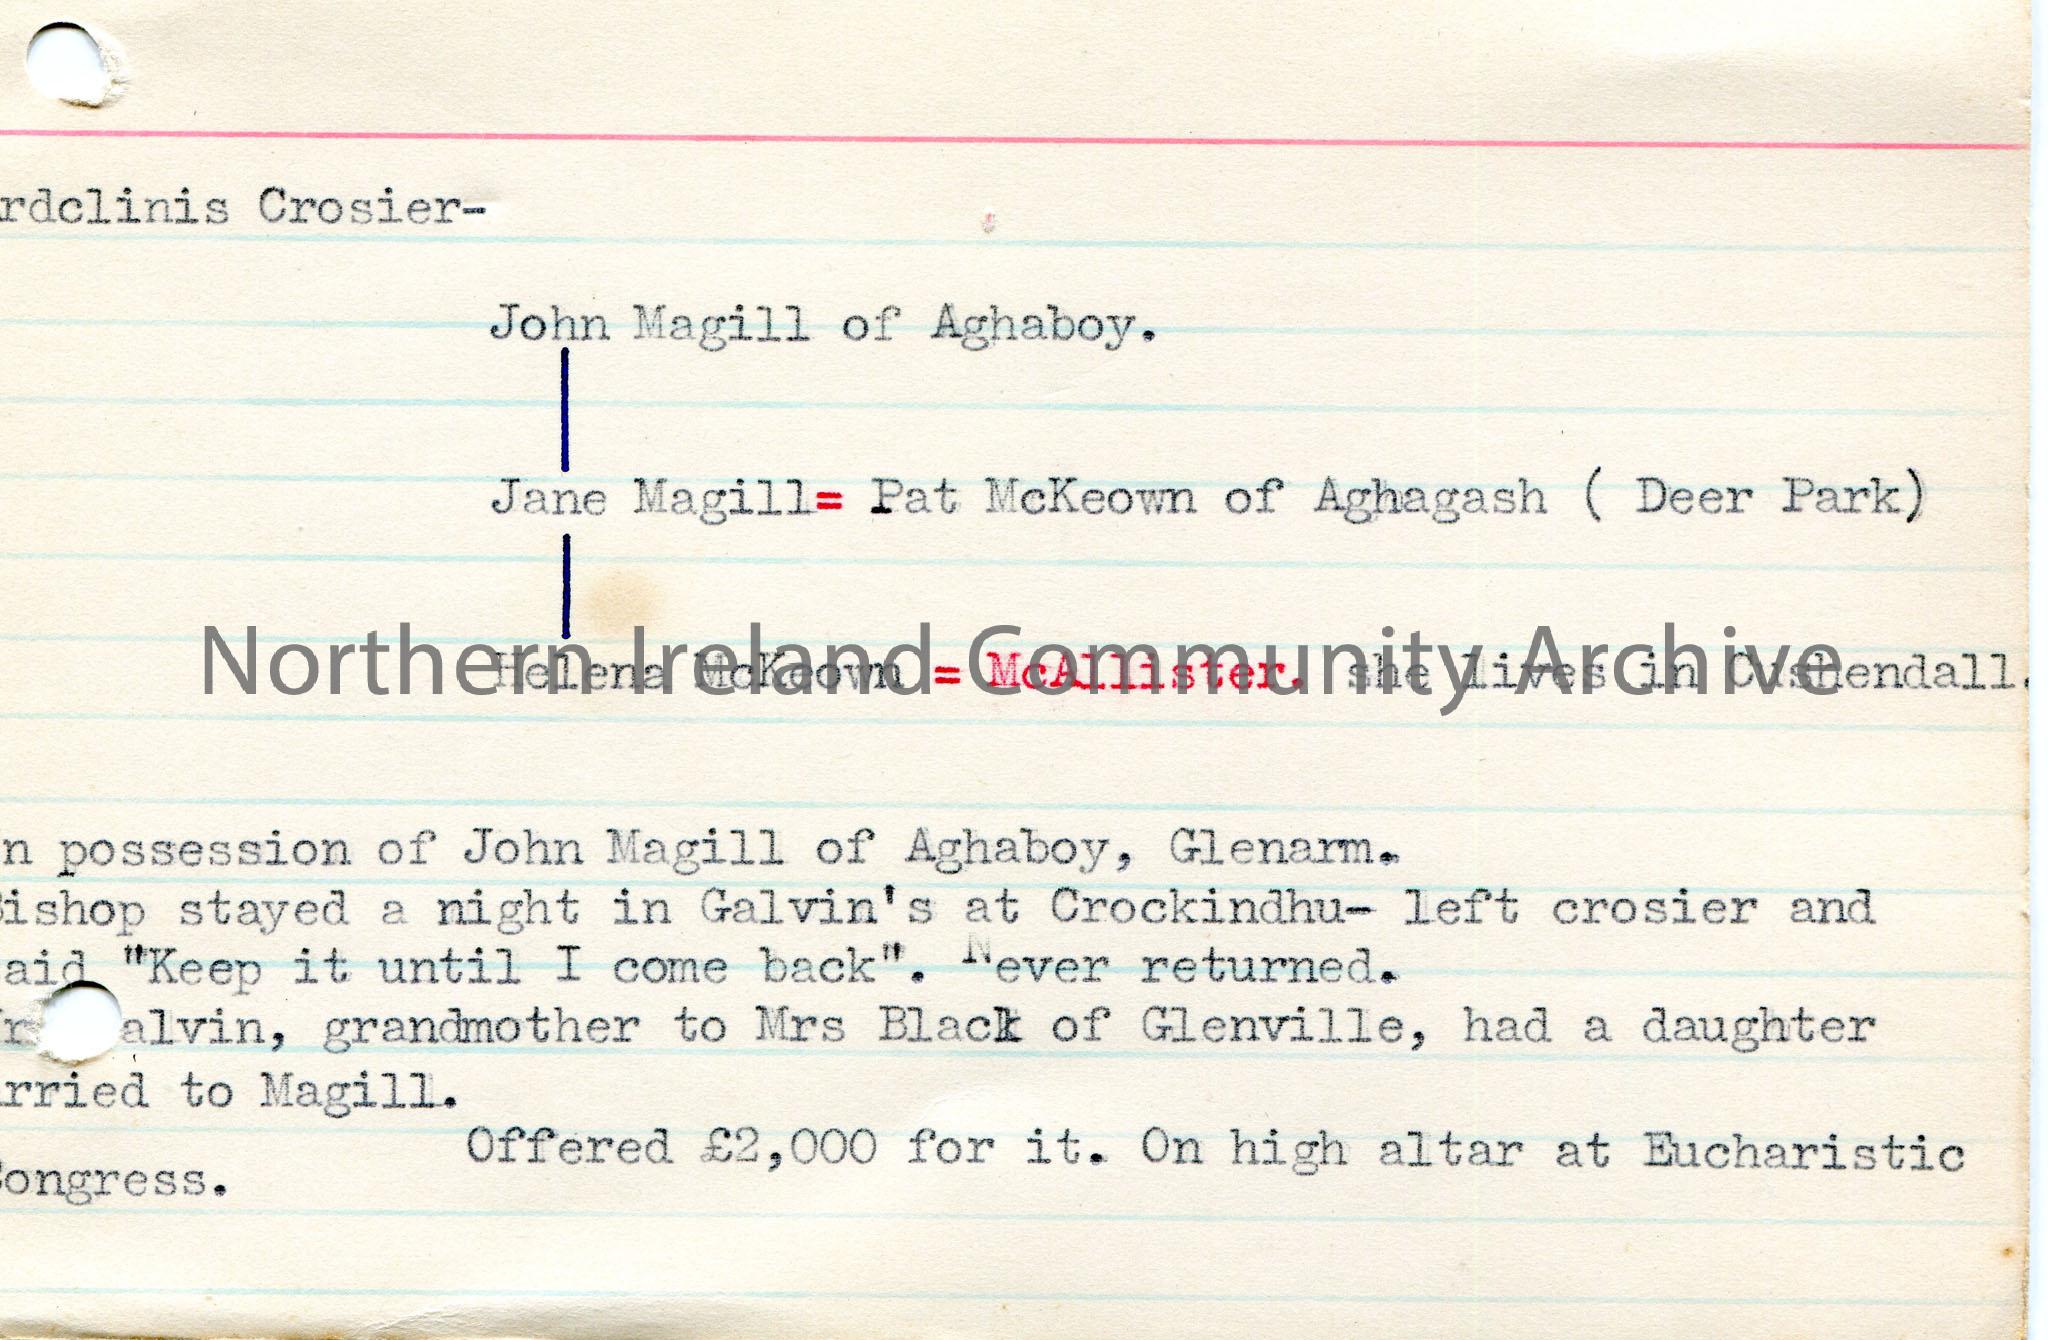 rdclinis Crosier-
John Magill of Aghaboy.
Jane Magill= Pat McKeown of Aghagash ( Deer Park)
Helena McKeown = McAllister. she lives in Cushendall.
Northern Ireland Community Archive
n possession of John Magill of Aghaboy, Glenarm.
Bishop stayed a night in Galvin's at Crockindhu- left crosier and
aid "Keep it until I come back". Never returned.
alvin, grandmother to Mrs Black of Glenville, had a daughter
rried to Magill.
Offered £2,000 for it. On high altar at Eucharistic
Congress.